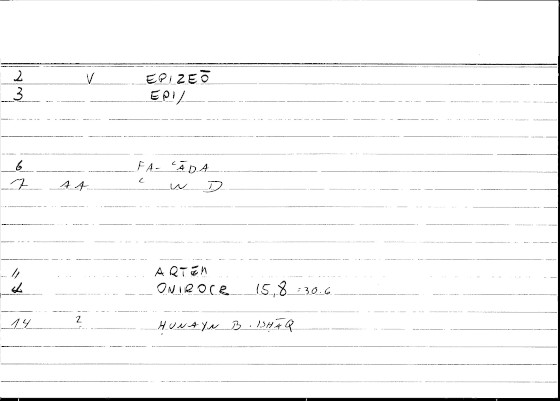 2 V EPIZEŌ
3 EPI/
6 FA- ʿĀDA
7 AA ʿ W D
11 ARTEM
ONIROCR 15,8 =30.6
14 2 HUNAYN B. ISHĀQ